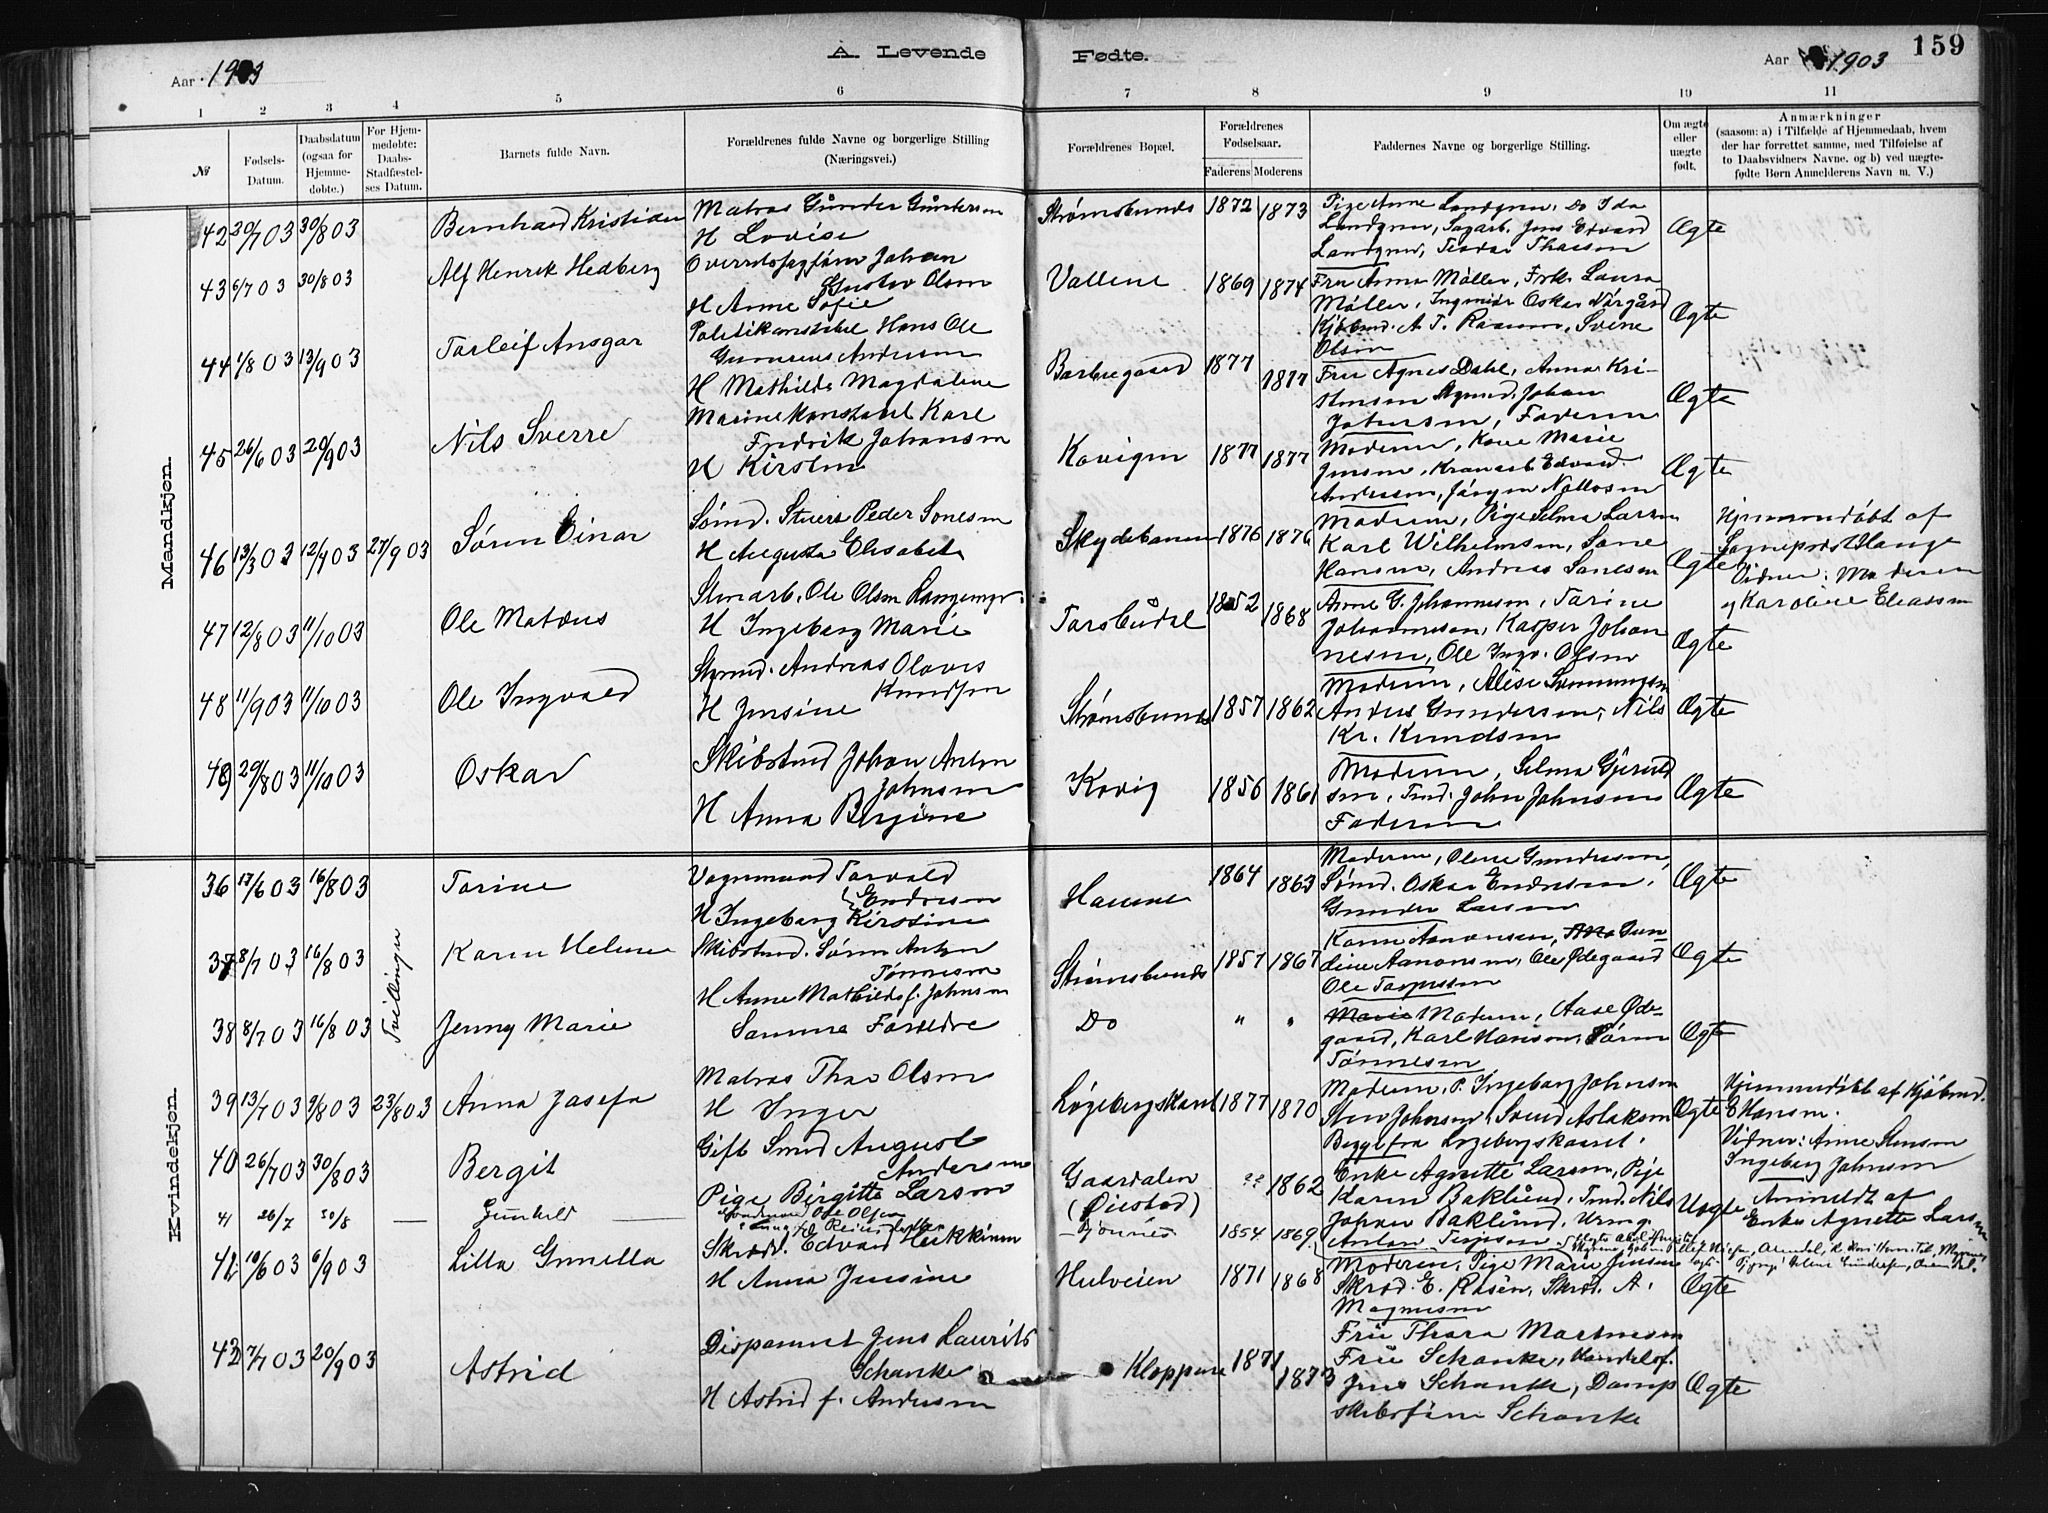 Aar 1903
A. Levende
Fødte.
Aar 1903
159
1 2 3 4 5 6 7 8 9 10 11
№
Fødsels-
Datum.
Daabsdatum
(ogsaa for
Hjemme-
døbte.)
For Hjem-
medøbte:
Daabs-
Stadfæstel-
ses Datum.
Barnets fulde Navn.
Forældrenes fulde Navne og borgerlige Stilling
(Næringsvei.)
Forældrenes Bopæl.
Forældrenes
Fødselsaar.
Faderens Moderens
Faddernes Navne og borgerlige Stilling.
Om ægte
eller
uægte
født.
Anmærkninger
(saasom: a) i Tilfælde af Hjemmedaab, hvem
der har forrettet samme, med Tilføielse af
to Daabsvidners Navne. og b) ved uægte-
fødte Børn Anmelderens Navn m. V.)
Mandkjøn.
42 20/7 03 30/8 03 Bernhard Kristian
Matros Gunder Gundersen
H Lovise
Strømsbunds 1872 1873
Pige Anne Landgren, Do Ida
Landgren, Sagarb. Jens Edvard
Landgren, Teodor Thorsen
Ægte
43 6/7 03 30/8 03 Alf Henrik Hedberg
Johan
Gustav Olsen
H Anne Sofie
Vallene 1869 1874
Fru Anna Møller, Frk. Laura
Møller, Ingeniør Oskar Nørgård
Kjøbmd. A. T. Sverre
Olsen
Ægte
44 1/8 03 13/9 03 Torleif Ansgar
Politikonstabel Hans Ole
Andersen
H Mathilde Magdalene
Barbugaard 1877 1877
Fru Agnes Dahl, Anna Kri-
stensen Styrmd. Johan
Johnsen, Faderen
Ægte
45 26/6 03 20/9 03 Nils Sverre
Marinekonstabel Karl
Fredrik Johansen
H Kirsten
Kovigen 1877 1877
Moderen, Kone Marie
Jensen, Kranarb. Edvard
Andersen, Jørgen
Ægte
46 13/3 03 12/9 03 27/9 03 Søren Einar
Sømd. Peder Sørensen
H Augusta Elisabet
Skydebanen 1876 1876
Moderen, Pige Selma Larsen
Karl Wilhelmsen, Sørine
Hansen, Andreas Sørensen
Ægte
Hjemmedøbt af
Sogneprest Hauge
Vidner: Moderen
og Karoline Eliassen
47 12/8 03 11/10 03 Ole Matæus
Stenarb. Ole Olsen Langemyr
H Ingeborg Marie
Torsbudal 1852 1868
Anne G. Johannesen, Torine
Johannesen, Kasper Johan
nesen, Ole Ingv. Olsen
Ægte
48 11/9 03 11/10 03 Ole Ingvald
Styrmd. Andreas Olavus
Knudsen
H Jensine
Strømsbunds 1857 1862
Moderen, Alise
Anders Gundersen, Nils
Kr. Knudsen
Ægte
49 29/8 03 11/10 03 Oskar
Skibstmd Johan Anton
Johnsen
H Anna Bergine
Kovig 1856 1861
Moderen, Selma Gjeruld
sen, Tmd. John Johnsen
Faderen
Ægte
Kvindekjøn.
36 17/6 03 16/8 03 Torine
Vognmand Torvald
Endresen
H Ingeborg Kirstine
Havene 1864 1863
Moderen, Olene Gundersen,
Sømd. Oskar Endresen,
Gunder Larsen
Ægte
Tvillinger
37 8/7 03 16/8 03 Karen Helene
Skibstmd. Søren Anton
Tønnesen
H Anne Mathilde f. Johnsen
Strømsbunds 1857 1867
Karen Aanonsen, Gun-
dine Aanonsen, Ole Ødegaard
Ole Torjussen
Ægte
38 8/7 03 16/8 03 Jenny Marie
Samme Forældre
Do " "
Marie Moderen, Aase Øde-
gaard, Karl Hansen, Søren
Tønnesen
Ægte
39 13/7 03 9/8 03 23/8 03 Anna Josefa
Matros Thor Olsen
H Inger
Løgebergskaret 1877 1870
Moderen, P. Ingeborg Johnsen
Sten Johnsen, Svend Aslaksen
Begge fra Løgebergskaret.
Ægte
Hjemmedøbt af Kjøbmd.
E Hansen.
Vidner: Anne Stensen
Ingeborg Johnsen
40 26/7 03 30/8 03 Bergit
Gift Smed August
Andersen
Pige Birgitte Larsen
Gaardalen
(Øiestad)
?? 1862
Enke Agnette Larsen, Pige
Karen Baklund, Tmd. Nils
Johan Baklund, Urmg.
Anton Terjesen
Uægte
Anmeldt af
Enke Agnette Larsen
41 26/7 30/8 — Gunhild —
Ole Olsen
Bjønnes 1854 1869
42 10/6 03 6/9 03 Lilla Gunella
Skrædd. Edvard Hækkinen
H Anna Jensine
Hulveien 1871 1868
Moderen, Pige Marie Jensen
Skræd. E. Rosén, Skræd. A.
Magnusen
Ægte
43 7/7 03 20/9 03 Astrid
Dispachør Jens Laurits
Schanke
H Astrid f. Andersen
Kloppene 1871 1873
Fru Thora Martinsen
Fru Schanke, Handelsf.
Jens Schanke, Damp
skibsfører Schanke
Ægte